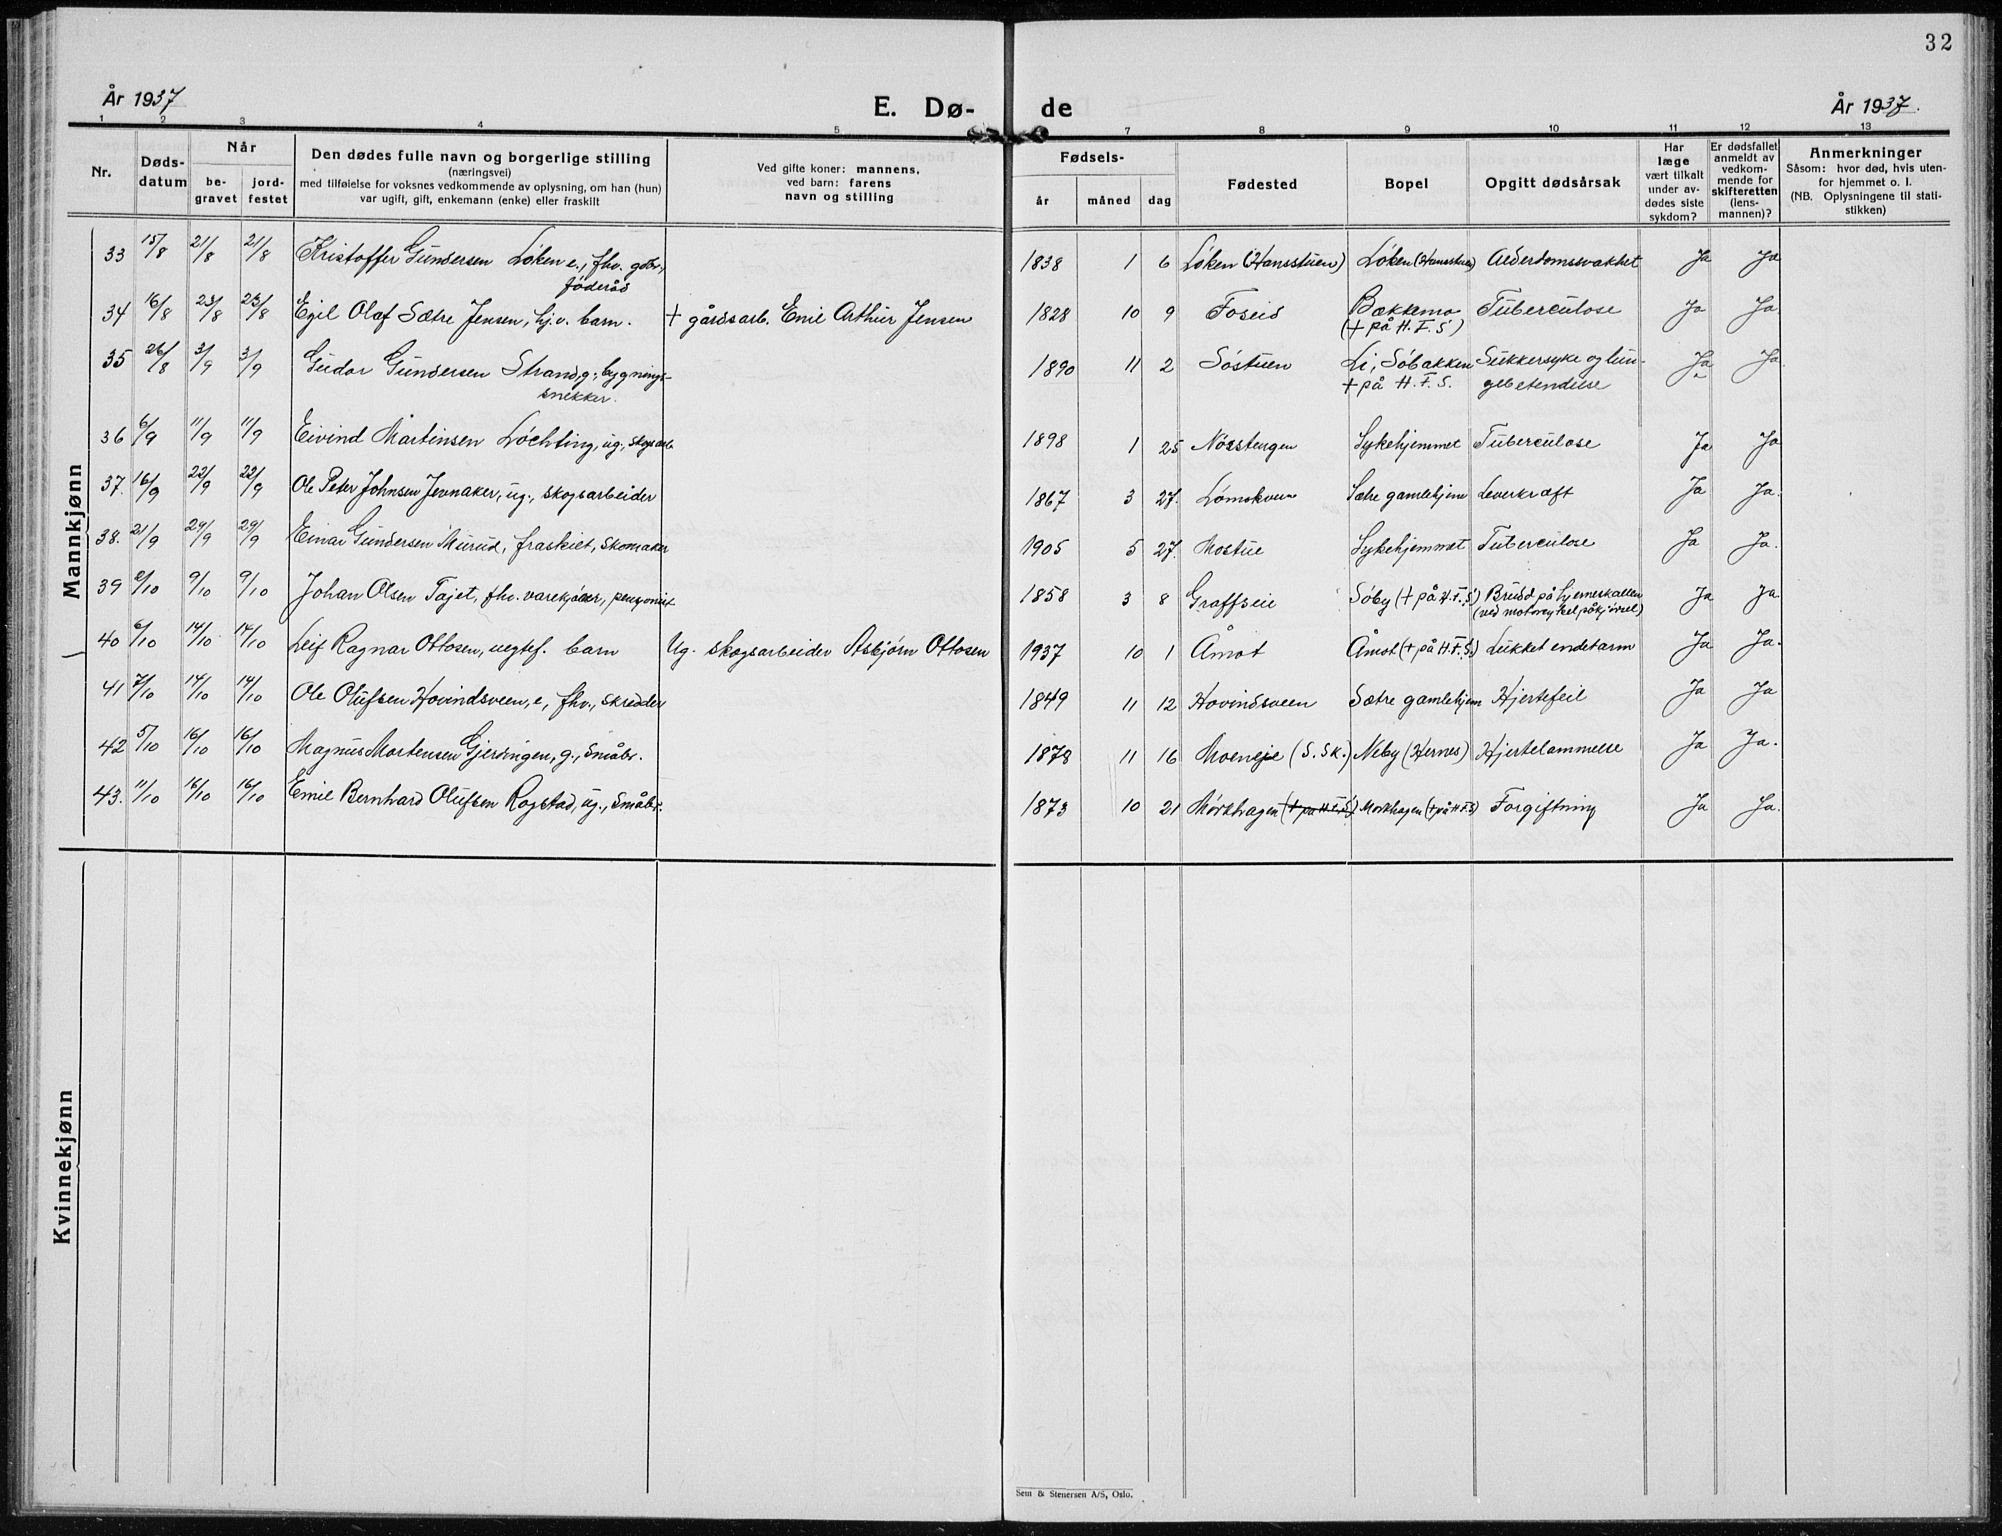 32
År 1937
E. Dø- de
År 1937.
1 2 3 4 5 7 8 9 10 11 12 13
Nr.
Døds-
datum
Når
be-
gravet
jord-
festet
Den dødes fulle navn og borgerlige stilling
(næringsvei)
med tilføielse for voksnes vedkommende av oplysning, om han (hun)
var ugift, gift, enkemann (enke) eller fraskilt
Ved gifte koner: mannens,
ved barn: farens
navn og stilling
Fødsels-
år måned dag
Fødested
Bopel
Opgitt dødsårsak
Har
læge
vært tilkalt
under av-
dødes siste
sykdom?
Er dødsfallet
anmeldt av
vedkom-
mende for
skifteretten
(lens-
mannen)?
Anmerkninger
Såsom: hvor død, hvis uten-
for hjemmet o. l.
(NB. Oplysningene til stati-
stikken)
Mannkjønn
33 15/8 21/8 21/8 Kristoffer Gundersen Løken e., fhv. gdbr., 1838 1 6 Løken (Hansstuen) Løken (Hansstuen) Alderdomssvakhet Ja Ja
föderåd
34 16/8 23/8 23/8 Egil Olaf Sætre Jensen, hj.v. barn. + gårdsarb. Emil Arthur Jensen 1828 10 9 Foseid Bækkemo Tuberculose Ja Ja
(+ på H.F.S)
35 26/8 3/9 3/9 Gudor Gundersen Strand, g., bygnings- 1890 11 2 Søstuen Li, Søbakken Sukkersyke og lun- Ja Ja
snekker. + på H.F.S. gebetendlse
36 6/9 11/9 11/9 Eivind Martinsen Løchting, ug., skogsarb 1898 1 25 Nordstengen Sykehjemmet Tuberculose Ja Ja
37. 16/9 22/9 22/9 Ole Peter Johnsen Jevnaker, ug., skogsarbeider 1867 3 27. Lømokven Sætre gamlehjem Leverkræft Ja Ja.
38. 21/9 29/9 29/9 Einar Gundersen Murud, fraskilt, skomaker 1905 5 27. Mostue Sykehjemmet Tuberculose Ja Ja.
39 2/10 9/10 9/10 Johan Olsen Tajet, fhv. varekjører, pensjonist 1858 3 8 Graffseie Søby (+ på H.F.S) Brudd på hjerneskallen Ja Ja
(ved motorsykkelpåkjørsel)
40 6/10 14/10 14/10 Leif Ragnar Ottosen, uegtef. barn Ug. skogsarbeider Asbjørn Ottosen 1937 10 1 Åmot Åmot (+ på H.F.S.) Lukket endetarm Ja Ja.
41 7/10 14/10 14/10 Ole Olufsen Hovindsveen, e, fhv., skredder 1849 11 12 Hovindsveen Sætre gamlehjem Hjertefeil Ja Ja
42 5/10 16/10 16/10 Magnus Mortensen Gjerdingen, g., småbr. 1878 11 16 Moeneje (S. Sk.) Neby (Hernes) Hjertelammelse Ja Ja.
43. 11/10 16/10 16/10 Emil Bernhard Olufsen Rogstad, ug., småbr. 1873 10 21 Mørkhagen (+ på H.F.S) Mørkhagen (+ på H.F.S) Forgiftning Ja Ja.
Kvinnekjønn
Sem & Stenersen A/S, Oslo.